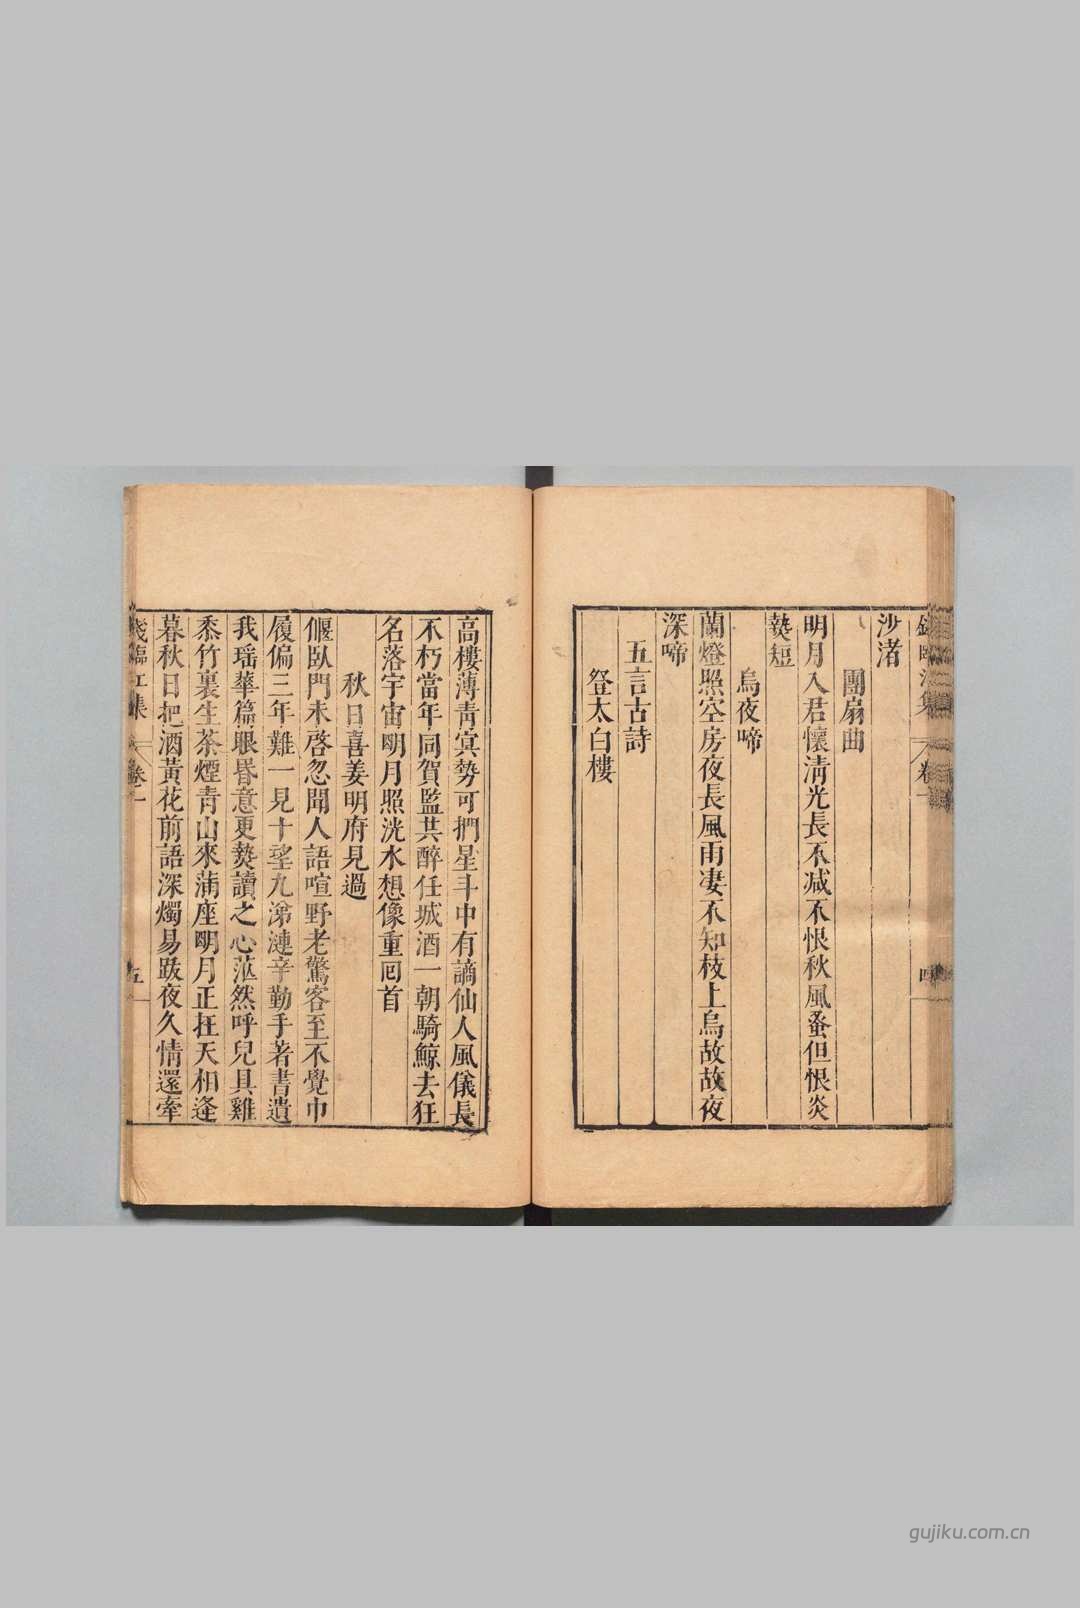 錢臨江集 卷一 四
沙渚
團扇曲
明月入君懷清光長不减不恨秋風蚤但恨炎
𤍠短
烏夜啼
蘭燈照空房夜長風雨凄不知枝上烏故故夜
深啼
五言古詩
登太白樓
高樓薄青冥勢可捫星斗中有謫仙人風儀長
不朽當年同賀監共醉任城酒一朝騎鯨去狂
名落宇宙明月照洸水想像重囘首
秋日喜姜明府見過
偃臥門未啓忽聞人語喧野老驚客至不覺巾
履偏三年難一見十望九涕漣辛勤手著書遺
我瑶華篇眼昬意更𤍠讀之心茫然呼兒具雞
黍竹裏生茶煙青山來蒲座明月正在天相逢
暮秋日把酒黃花前語深燭易跋夜久情還牽
錢臨江集 卷一 五
gujiku.com.cn